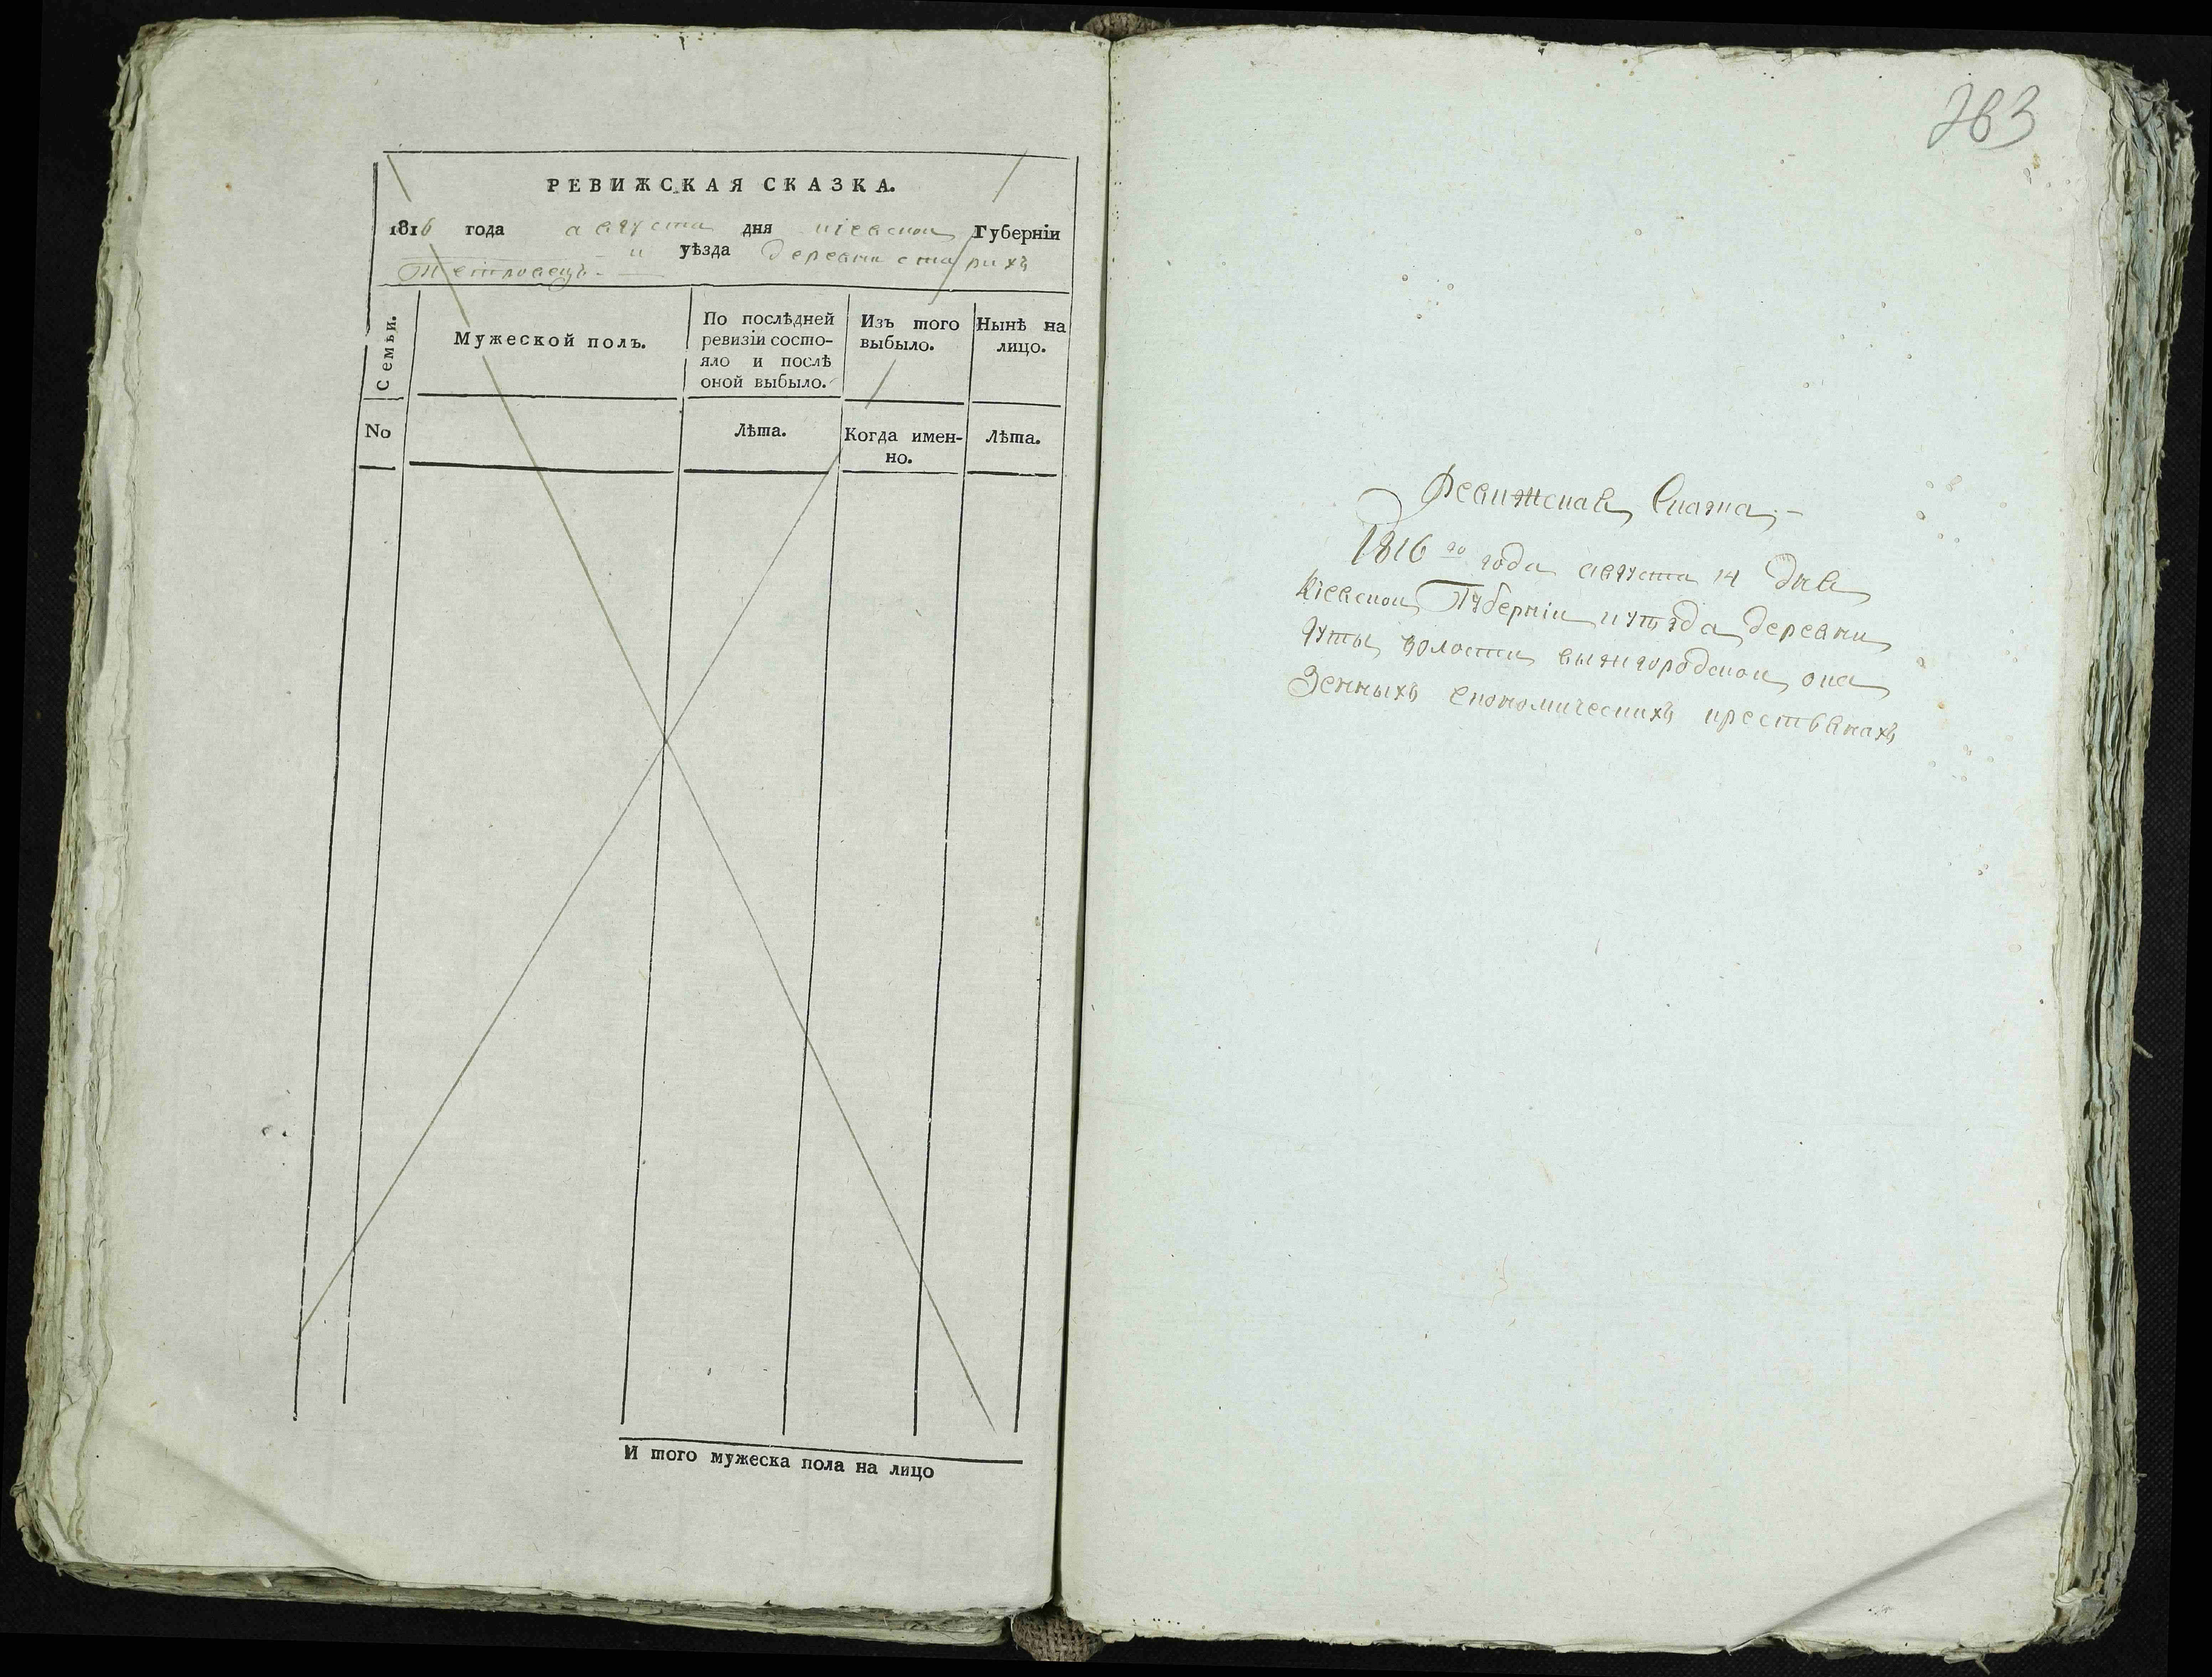 РЕВИЖСКАЯ СКАЗКА.
1816 года августа дня киевской Губерніи
и уѣзда деревни старихъ
Петровецъ
Семьи.
Мужеской полъ.
По послѣдней ревизіи состо-
яло и послѣ
оной выбыло.
Изъ того
выбыло.
Нынѣ на
лицо.
No
Лѣта.
Когда имен-
но.
Лѣта.
И того мужеска пола на лицо
263
Ревижская Сказка
1816 го года августа 14 дня
Кіевской Губерніи и уѣзда деревни
волости вышгородской о ка
зенныхъ економическихъ крестьянахъ